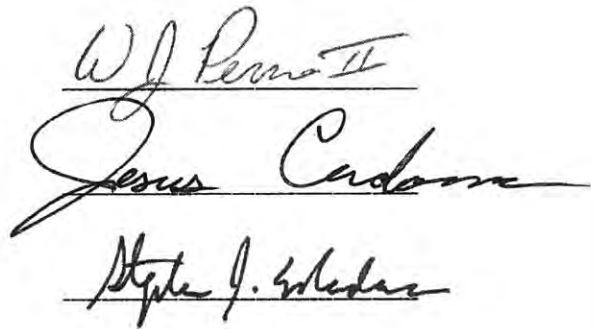 W J Perna II
Jesus Cardona
Stephen J.